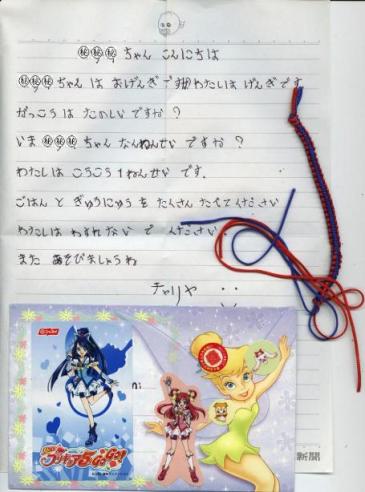 ㊙㊙㊙ちゃん こんにちは
㊙㊙㊙ちゃん は おげんき ですか わたしは げんき です
がっこう は たのしい ですか ?
いま ㊙㊙㊙ちゃん なんねんせい ですか ?
わたしは こうこう 1 ねんせい です.
ごはん と ぎゅうにゅう を たくさん たべて ください
わたしは わすれない で ください
また あそびましょうね
チャリヤ
プリキュア5GoGo!
新聞